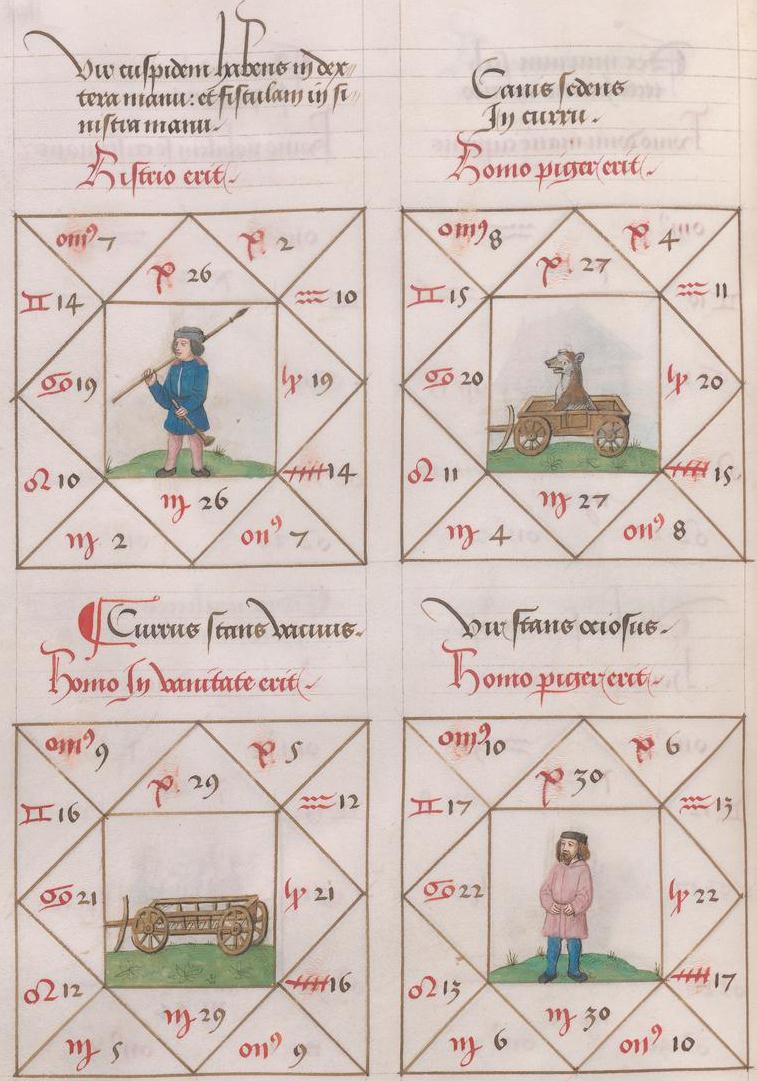 Vir cuspidem habens in dex-
tera manu: et fistulam in si-
nistra manu.
Histrio erit.
♉ 7
♓ 26
♓ 2
♊ 14
♒ 10
♋ 19
♑ 19
♌ 10
♐ 14
♍ 26
♍ 2
Canis sedens
In curru.
Homo piger erit.
♉ 8
♓ 27
♓ 4
♊ 15
♒ 11
♋ 20
♑ 20
♌ 11
♐ 15
♍ 27
♍ 4
Currus stans vacuus.
Homo In vanitate erit.
♉ 9
♓ 29
♓ 5
♊ 16
♒ 12
♋ 21
♑ 21
♌ 12
♐ 16
♍ 29
♍ 5
Vir stans ociosus.
Homo piger erit.
♉ 10
♓ 30
♓ 6
♊ 17
♒ 13
♋ 22
♑ 22
♌ 13
♐ 17
♍ 30
♍ 6